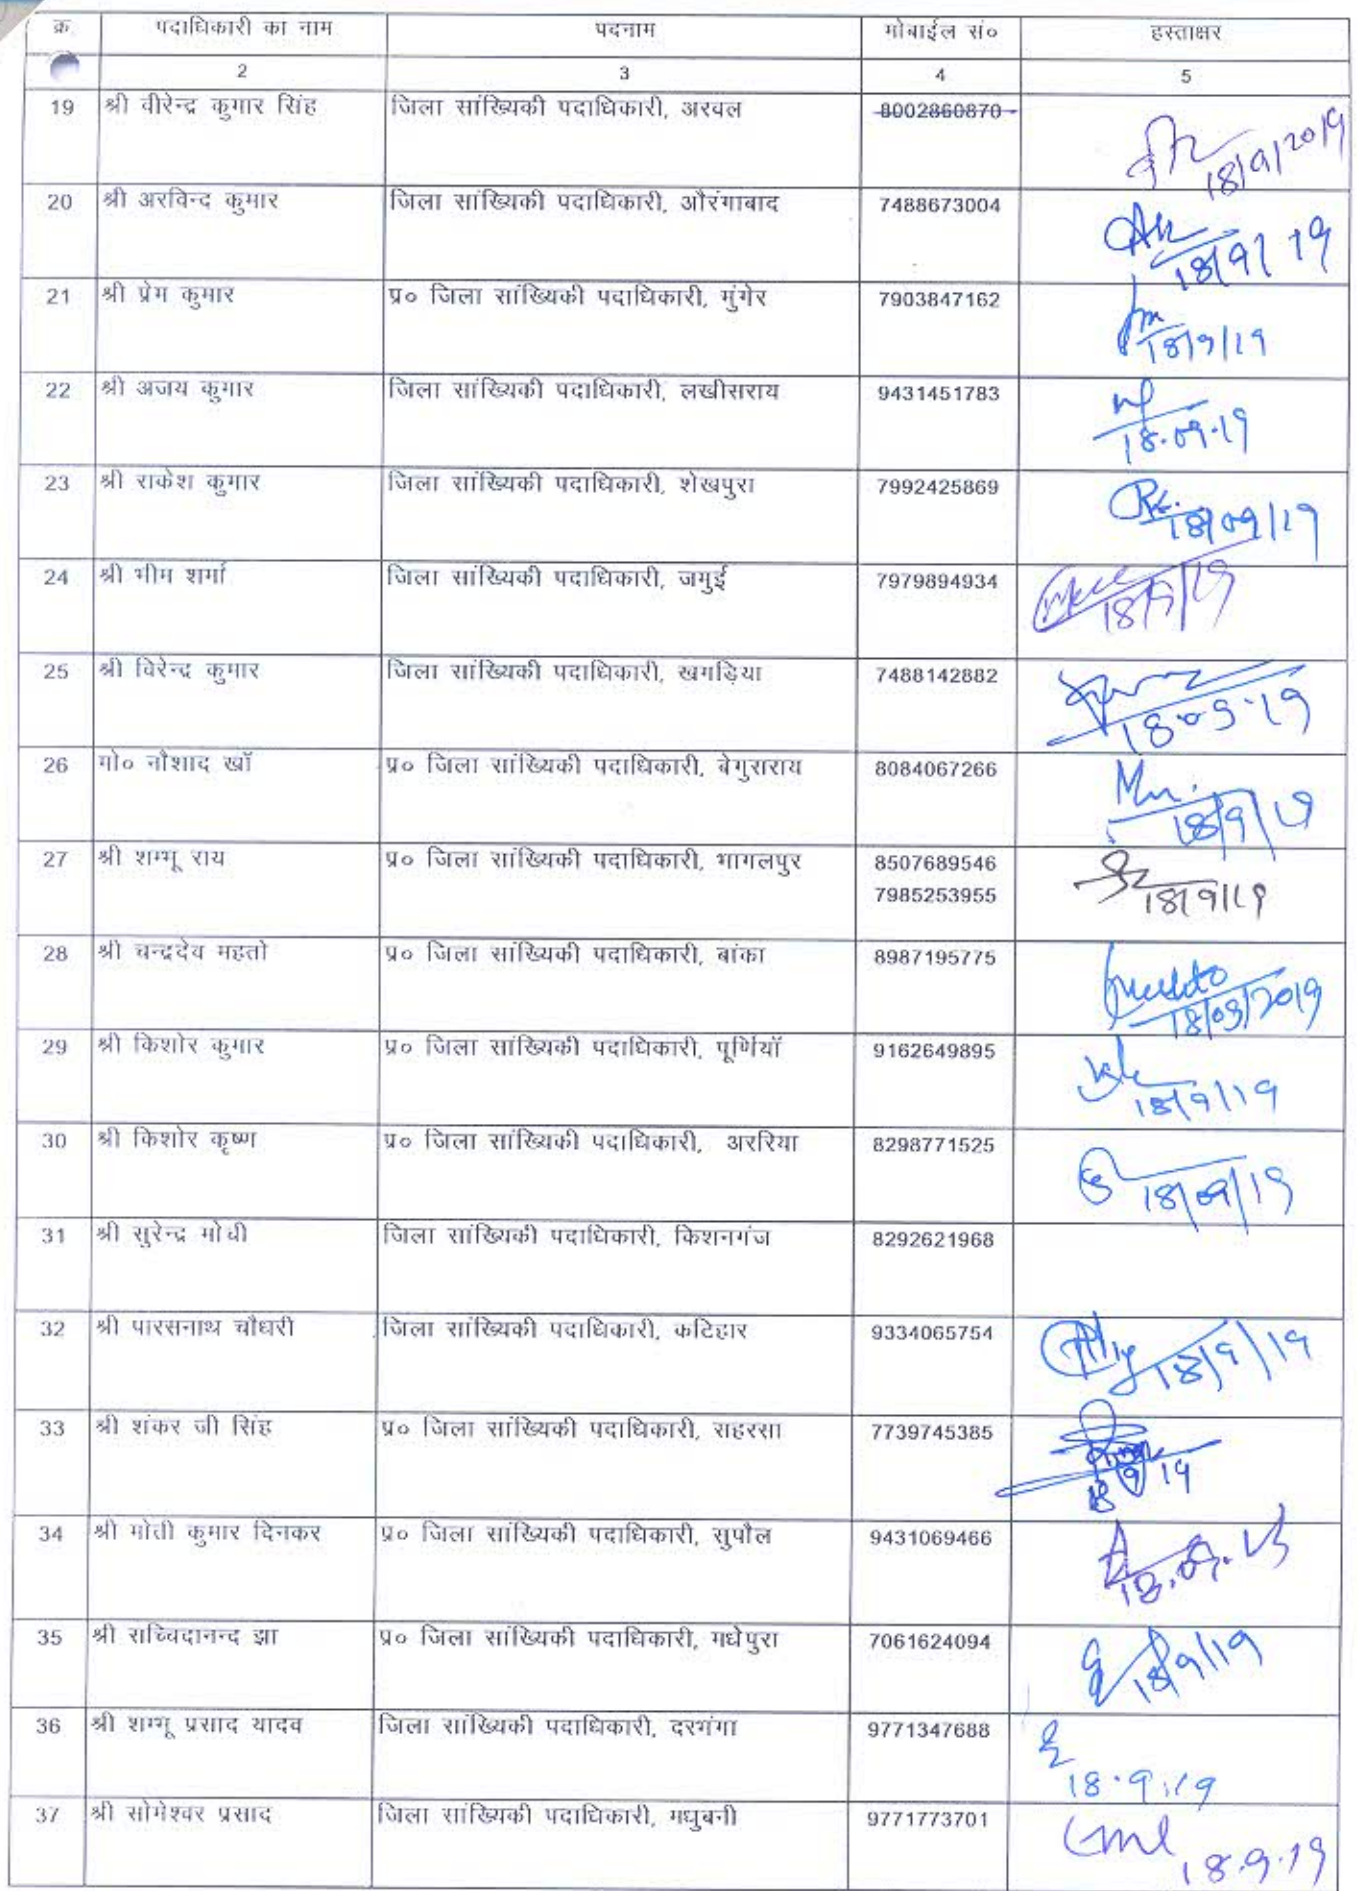 क्र पदाधिकारी का नाम पदनाम मोबाईल सं० हस्ताक्षर
2 3 4 5
19 श्री वीरेन्द्र कुमार सिंह जिला सांख्यिकी पदाधिकारी, अरवल 8002860870 18/9/2019
20 श्री अरविन्द कुमार जिला सांख्यिकी पदाधिकारी, औरंगाबाद 7488673004 18/9/19
21 श्री प्रेम कुमार प्र० जिला सांख्यिकी पदाधिकारी, मुंगेर 7903847162 18/9/19
22 श्री अजय कुमार जिला सांख्यिकी पदाधिकारी, लखीसराय 9431451783 18.09.19
23 श्री राकेश कुमार जिला सांख्यिकी पदाधिकारी, शेखपुरा 7992425869 18/09/19
24 श्री भीम शर्मा जिला सांख्यिकी पदाधिकारी, जमुई 7979894934 18/9/19
25 श्री विरेन्द्र कुमार जिला सांख्यिकी पदाधिकारी, खगड़िया 7488142882 18.09.19
26 मो० नौशाद खॉ प्र० जिला सांख्यिकी पदाधिकारी, बेगुसराय 8084067266 18/9/19
27 श्री शम्भू राय प्र० जिला सांख्यिकी पदाधिकारी, भागलपुर 8507689546 18/9/19
7985253955
28 श्री चन्द्रदेव महतो प्र० जिला सांख्यिकी पदाधिकारी, बांका 8987195775 18/09/2019
29 श्री किशोर कुमार प्र० जिला सांख्यिकी पदाधिकारी, पूर्णियॉ 9162649895 18/9/19
30 श्री किशोर कृष्ण प्र० जिला सांख्यिकी पदाधिकारी, अररिया 8298771525 18/09/19
31 श्री सुरेन्द्र मोची जिला सांख्यिकी पदाधिकारी, किशनगंज 8292621968
32 श्री पारसनाथ चौधरी जिला सांख्यिकी पदाधिकारी, कटिहार 9334065754 18/9/19
33 श्री शंकर जी सिंह प्र० जिला सांख्यिकी पदाधिकारी, सहरसा 7739745385 18/9/19
34 श्री मोती कुमार दिनकर प्र० जिला सांख्यिकी पदाधिकारी, सुपौल 9431069466 18.09.19
35 श्री सच्चिदानन्द झा प्र० जिला सांख्यिकी पदाधिकारी, मधेपुरा 7061624094 18/9/19
36 श्री शम्भू प्रसाद यादव जिला सांख्यिकी पदाधिकारी, दरभंगा 9771347688 18.9.19
37 श्री सोमेश्वर प्रसाद जिला सांख्यिकी पदाधिकारी, मधुबनी 9771773701 18.9.19